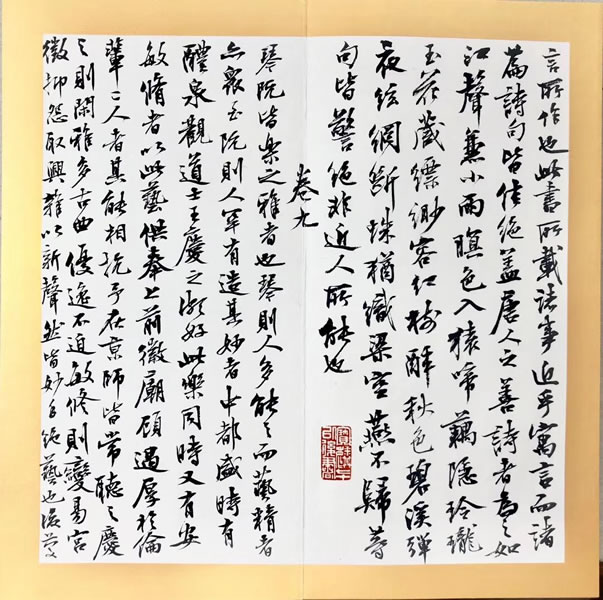 言所作也此書所載詩事近乎寓言而諸
篇詩句皆佳絕蓋唐人之善詩者為之如
江聲兼小雨暝色入猿啼藕隱玲瓏
玉花藏縹緲容紅樹醉秋色碧溪彈
夜絃網斷珠猶織梁空燕不歸等
句皆警絕非近人所能也
卷九
琴阮皆樂之雅者也琴則人多能之而藝精者
亦眾至阮則人罕有造其妙者中都盛時有
醴泉觀道士王慶之獨好此樂同時又有安
敏脩者以此藝供奉上前徽廟顧遇厚於倫
輩二人者其能相抗予在京師皆常聽之慶
之則閑雅多古曲優逸不迫敏脩則變易宮
徵抑怨取興雜以新聲然皆妙手絕藝也